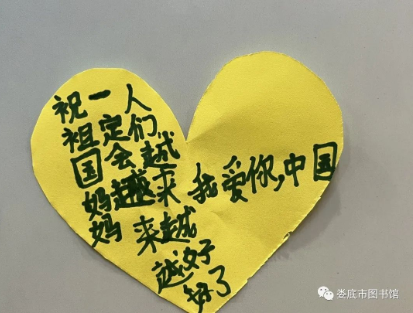 祝祖国妈妈
一定会越来越好
人们越来越好了
我爱你,中国
娄底市图书馆